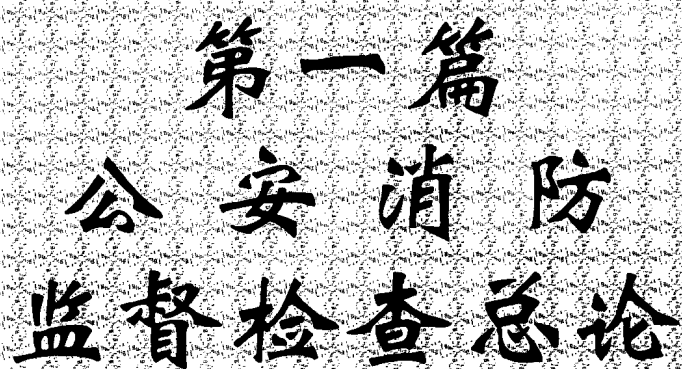 第一篇
公安消防
监督检查总论